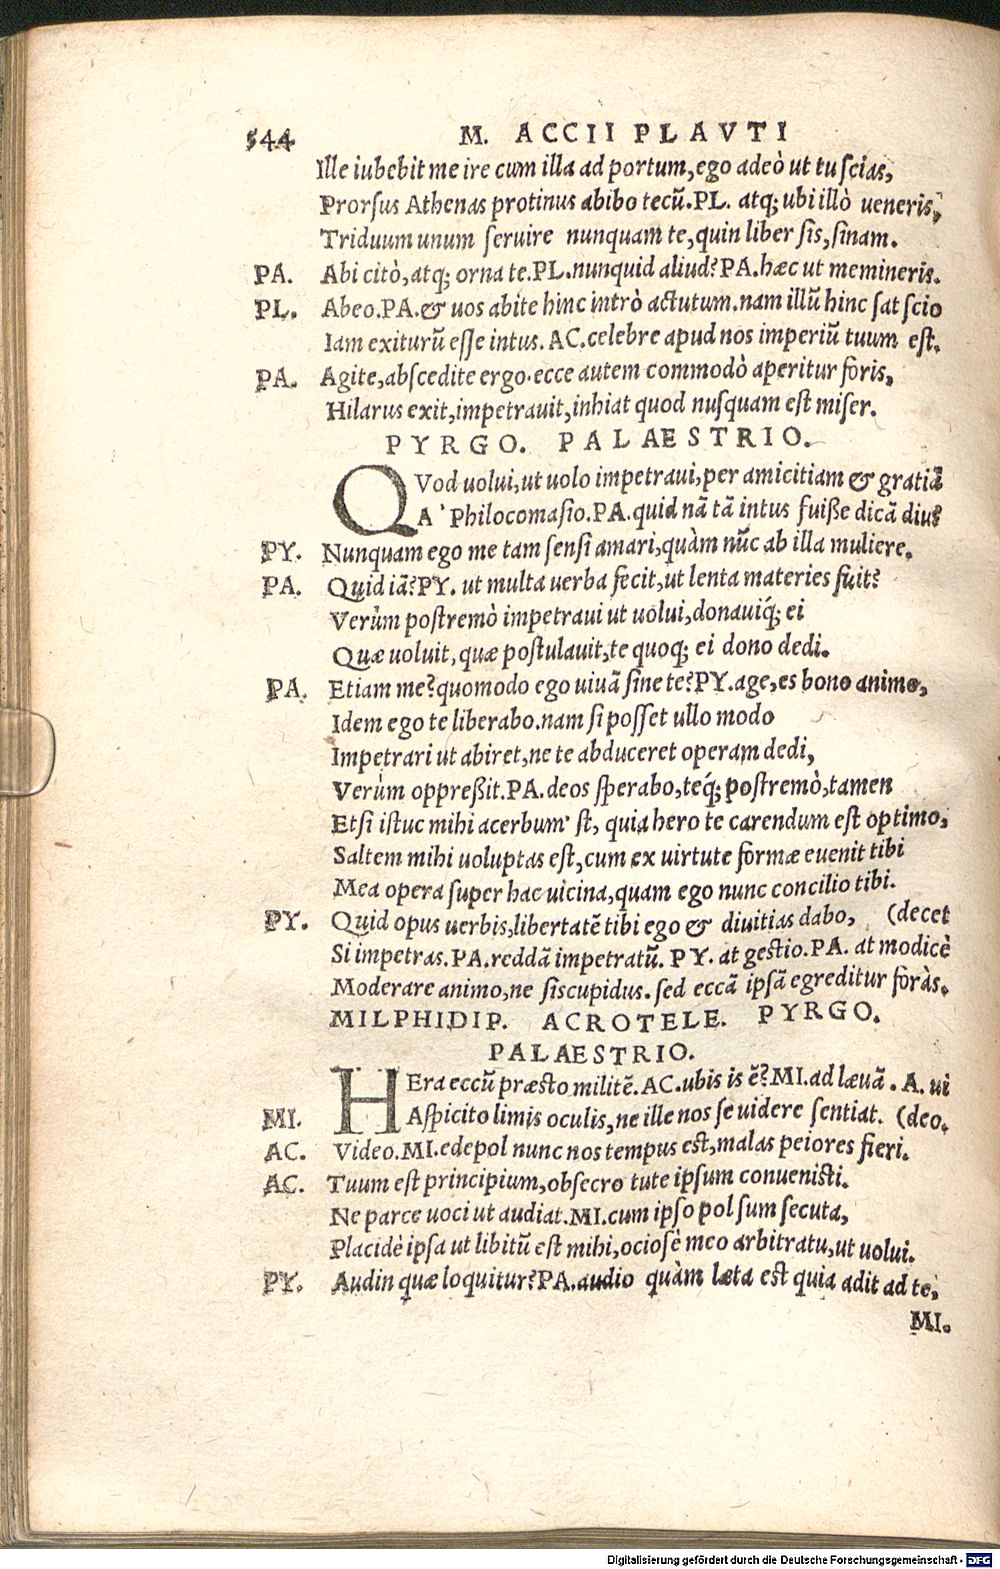 544 M. ACCII PLAVTI
Ille iubebit me ire cum illa ad portum, ego adeò ut tu scias,
Prorsus Athenas protinus abibo tecũ. PL. atq; ubi illò ueneris,
Triduum unum seruire nunquam te, quin liber sis, sinam.
PA. Abi citò, atq; orna te. PL. nunquid aliud? PA. hæc ut memineris.
PL. Abeo. PA. & uos abite hinc intrò actutum. nam illũ hinc sat scio
Iam exiturũ esse intus. AC. celebre apud nos imperiũ tuum est.
PA. Agite, abscedite ergo. ecce autem commodò aperitur foris,
Hilarus exit, impetrauit, inhiat quod nusquam est miser.
PYRGO. PALAESTRIO.
QVod uolui, ut uolo impetraui, per amicitiam & gratiã
A' Philocomasio. PA. quid nã tã intus fuiße dicã diu?
PY. Nunquam ego me tam sensi amari, quàm nũc ab illa muliere.
PA. Quid iã? PY. ut multa uerba fecit, ut lenta materies fuit?
Verùm postremò impetraui ut uolui, donauiq́; ei
Quæ uoluit, quæ postulauit, te quoq; ei dono dedi.
PA. Etiam me? quomodo ego uiuã sine te? PY. age, es bono animo,
Idem ego te liberabo. nam si posset ullo modo
Impetrari ut abiret, ne te abduceret operam dedi,
Verùm oppreßit. PA. deos sperabo, teq́; postremò, tamen
Etsi istuc mihi acerbum' st, quia hero te carendum est optimo,
Saltem mihi uoluptas est, cum ex uirtute formæ euenit tibi
Mea opera super hac uicina, quam ego nunc concilio tibi.
PY. Quid opus uerbis, libertatẽ tibi ego & diuitias dabo, (decet
Si impetras. PA. reddã impetratũ. PY. at gestio. PA. at modicè
Moderare animo, ne siscupidus. sed eccã ipsã egreditur foràs.
MILPHIDIP. ACROTELE. PYRGO.
PALAESTRIO.
HEra eccũ præsto militẽ. AC. ubis is ẽ? MI. ad læuã. A. ui
MI. Aspicito limis oculis, ne ille nos se uidere sentiat. (deo.
AC. Video. MI. edepol nunc nos tempus est, malas peiores fieri.
AC. Tuum est principium, obsecro tute ipsum conuenisti.
Ne parce uoci ut audiat. MI. cum ipso pol sum secuta,
Placidè ipsa ut libitũ est mihi, ociosè meo arbitratu, ut uolui.
PY. Audin quæ loquitur? PA. audio quàm læta est quia adit ad te,
MI.
Digitalisierung gefördert durch die Deutsche Forschungsgemeinschaft - DFG